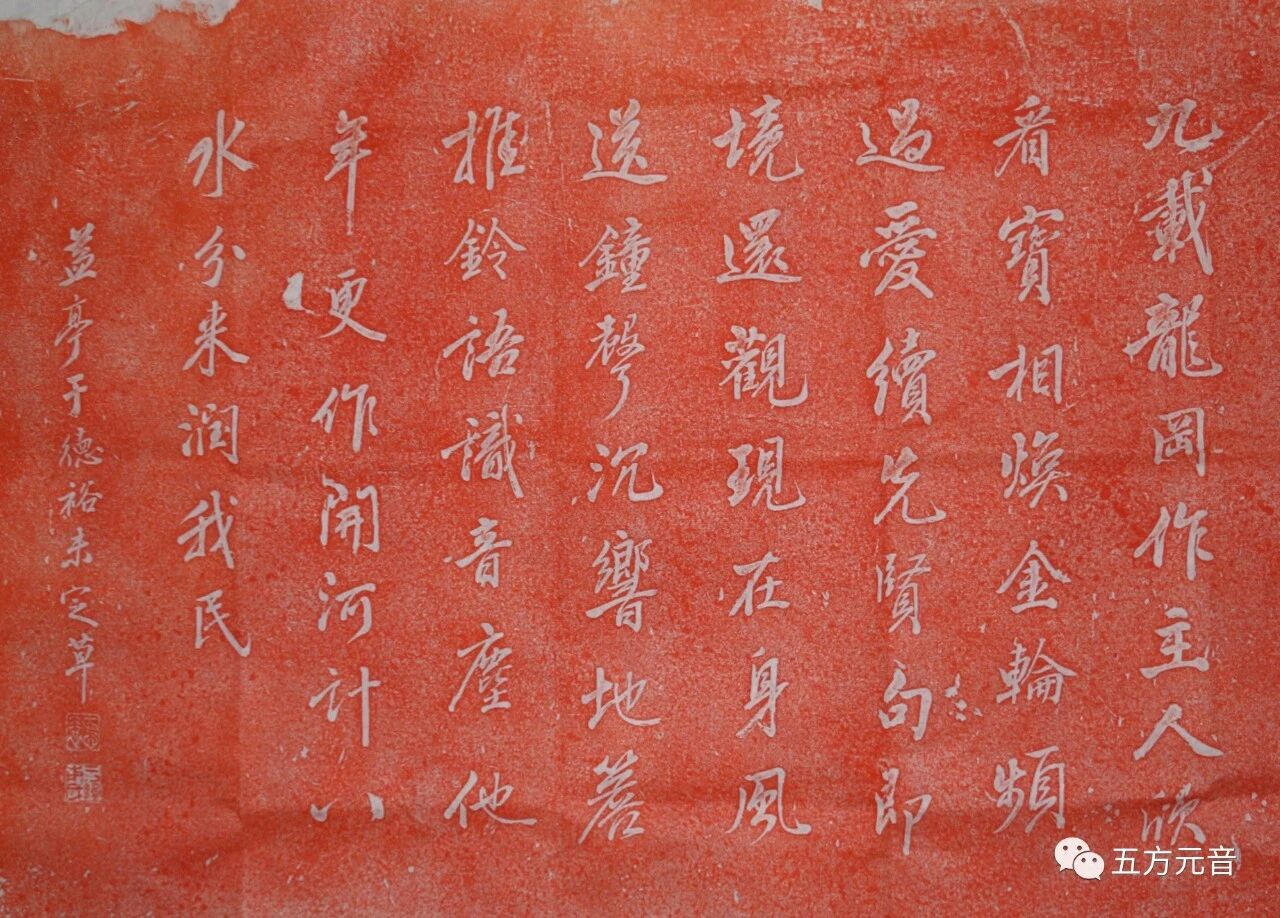 九載龍岡作主人欣
看寶相煥金輪頻
過愛續先賢句即
境還觀現在身風
送鐘聲沉響地簷
推鈴語識音塵他
年更作開河計八
水分来潤我民
益亭于德裕未定草
五方元音